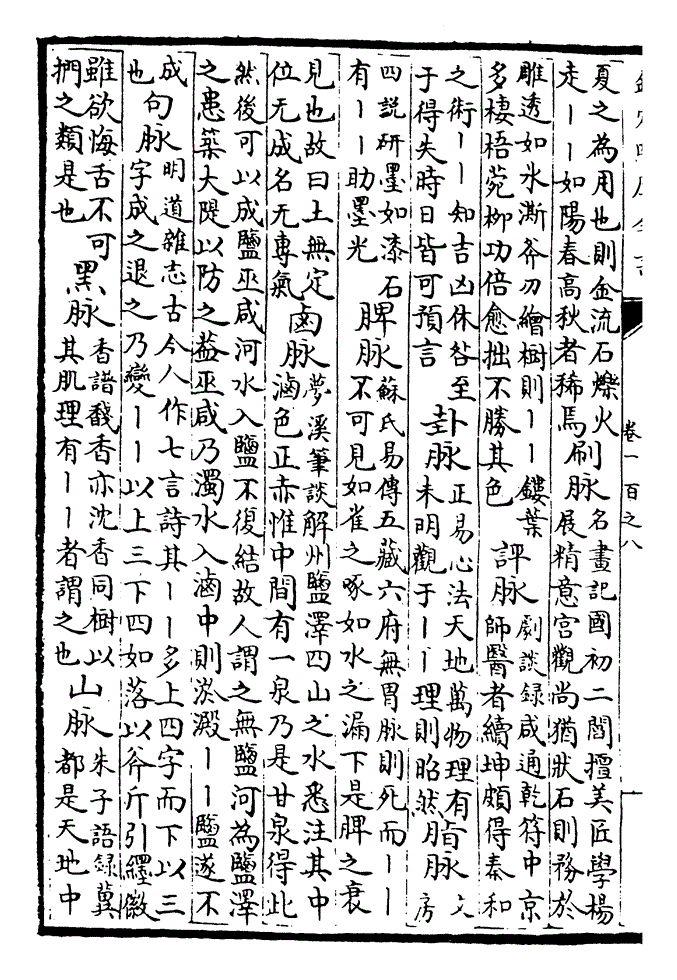 卷一百之八
夏之為用也則金流石爍火
走丨丨如陽春高秋者稀焉
刷脈
名畫記國初二閻擅美匠學楊
展精意宮觀尚猶狀石則務於
雕透如氷澌斧刃繪樹則丨丨鏤葉
多棲梧菀柳功倍愈拙不勝其色
評脈
劇談録咸通乾符中京
師醫者續坤頗得秦和
之術丨丨知吉凶休咎至
于得失時日皆可預言
卦脈
正易心法天地萬物理有
未明觀于丨丨理則昭然
脈
文
房
四説研墨如漆石
有丨丨助墨光
脾脈
蘇氏易傳五藏六府無胃脈則死而丨丨
不可見如雀之啄如水之漏下是脾之衰
見也故曰土無定
位无成名无專氣
鹵脈
夢溪筆談解州鹽澤四山之水悉注其中
滷色正赤惟中間有一泉乃是甘泉得此
然後可以成鹽巫咸河水入鹽不復結故人謂之無鹽河為鹽澤
之患築大隄以防之葢巫咸乃濁水入滷中則淤澱丨丨鹽遂不
成
也
句脈
明道雜志古今人作七言詩其丨丨多上四字而下以三
字成之退之乃變丨丨以上三下四如落以斧斤引纆徽
雖欲悔舌不可
捫之類是也
黑脈
香譜馢香亦沈香同樹以
其肌理有丨丨者謂之也
山脈
朱子語録冀
都是天地中